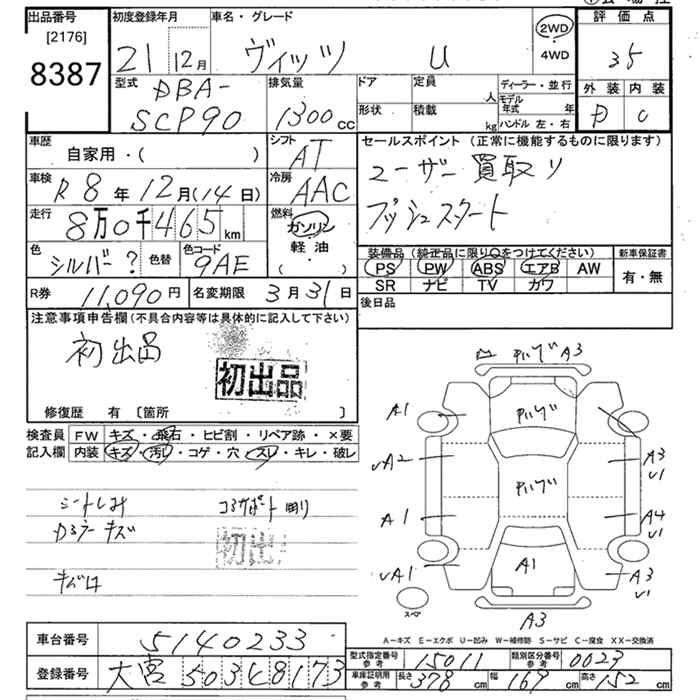 出品番号
[2176]
8387
初度登録年月
21 12月
車名・グレード
ヴィッツ U
2WD
・
4WD
評価点
35
外装 内装
D C
型式
DBA-
SCP90
排気量
1300 cc
ドア
形状
定員 人
積載 kg
ディーラー・並行
モデル年式 年
ハンドル 左・右
車歴
自家用・( )
シフト
AT
セールスポイント (正常に機能するものに限ります)
ユーザー買取り
プッシュスタート
車検
R8年12月(14日)
冷房
AAC
走行
8万0千465km
燃料
ガソリン
軽油
( )
色
シルバー?
色替
色コード
9AE
装備品 (純正品に限り○をつけてください)
PS PW ABS エアB AW
SR ナビ TV カワ
新車保証書
有・無
R券
11,090円
名変期限
3月31日
後日品
注意事項申告欄(不具合内容等は具体的に記入して下さい)
初出品
初出品
修復歴 有 〔箇所 〕
検査員
記入欄
FW キズ・飛石・ヒビ割・リペア跡・×要
内装 キズ・汚レ・コゲ・穴・スレ・キレ・破レ
シートしみ
コアサポート
キズ
初出
A3
A1
A3
U1
UA2
A1
A4
U1
UA1
A1
A3
U1
スペア
A3
A-キズ E-エクボ U-凹み W-補修跡 S-サビ C-腐食 XX-交換済
車台番号
5140233
登録番号
大宮 503
8173
型式指定番号
参考
15011
類別区分番号
参考
0023
車庫証明用
参考
長さ 378cm
幅 169cm
高さ 152cm